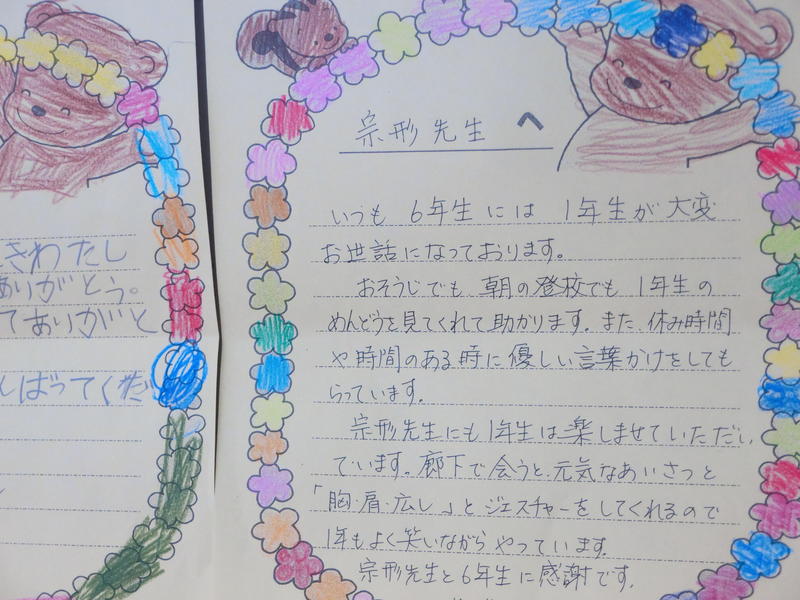 きわたし
ありがとう。
てありがと
んばってくだ
宗形先生 へ
いつも 6年生には 1年生が大変
お世話になっております。
おそうじでも 朝の登校でも 1年生の
めんどうを見てくれて助かります。また、休み時間
や時間のある時に優しい言葉かけをしても
らっています。
宗形先生にも1年生は楽しませていただい
ています。廊下で会うと元気なあいさつと
「胸・肩・広し」とジェスチャーをしてくれるので
1年もよく笑いながらやっています。
宗形先生と6年生に感謝です。